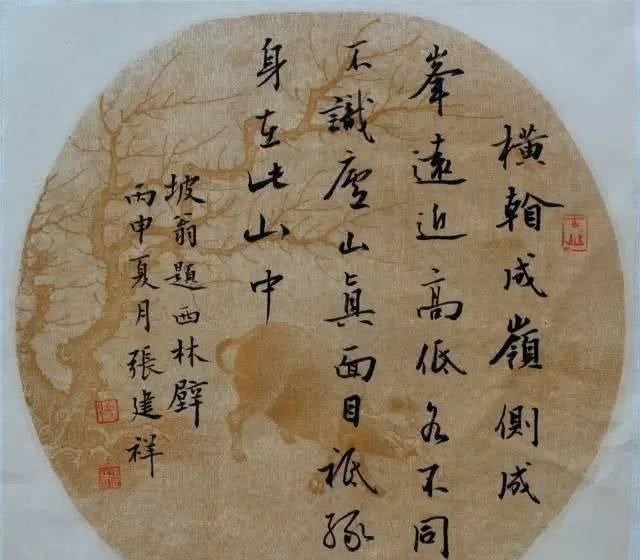 橫看成嶺側成
峯遠近高低各不同
不識廬山眞面目祗緣
身在此山中
坡翁題西林壁
丙申夏月張建祥